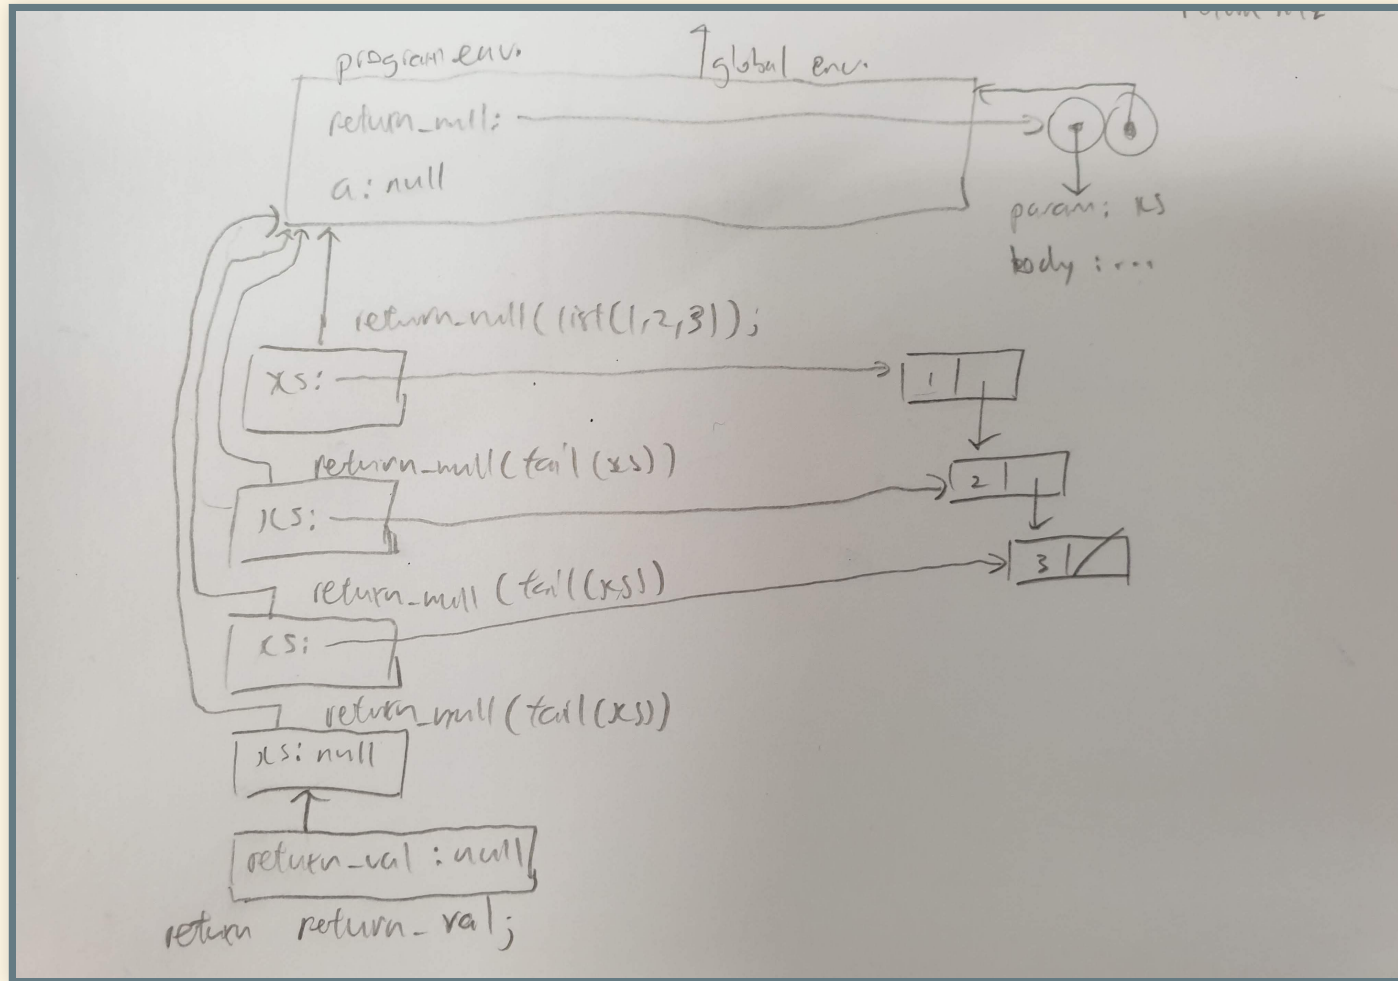 program env.
global env.
return_null:
a: null
param: xs
body: ...
return_null(list(1,2,3));
xs:
1
return_null(tail(xs))
2
xs:
3
return_null(tail(xs))
xs:
return_null(tail(xs))
xs: null
return_val : null
return return_val;